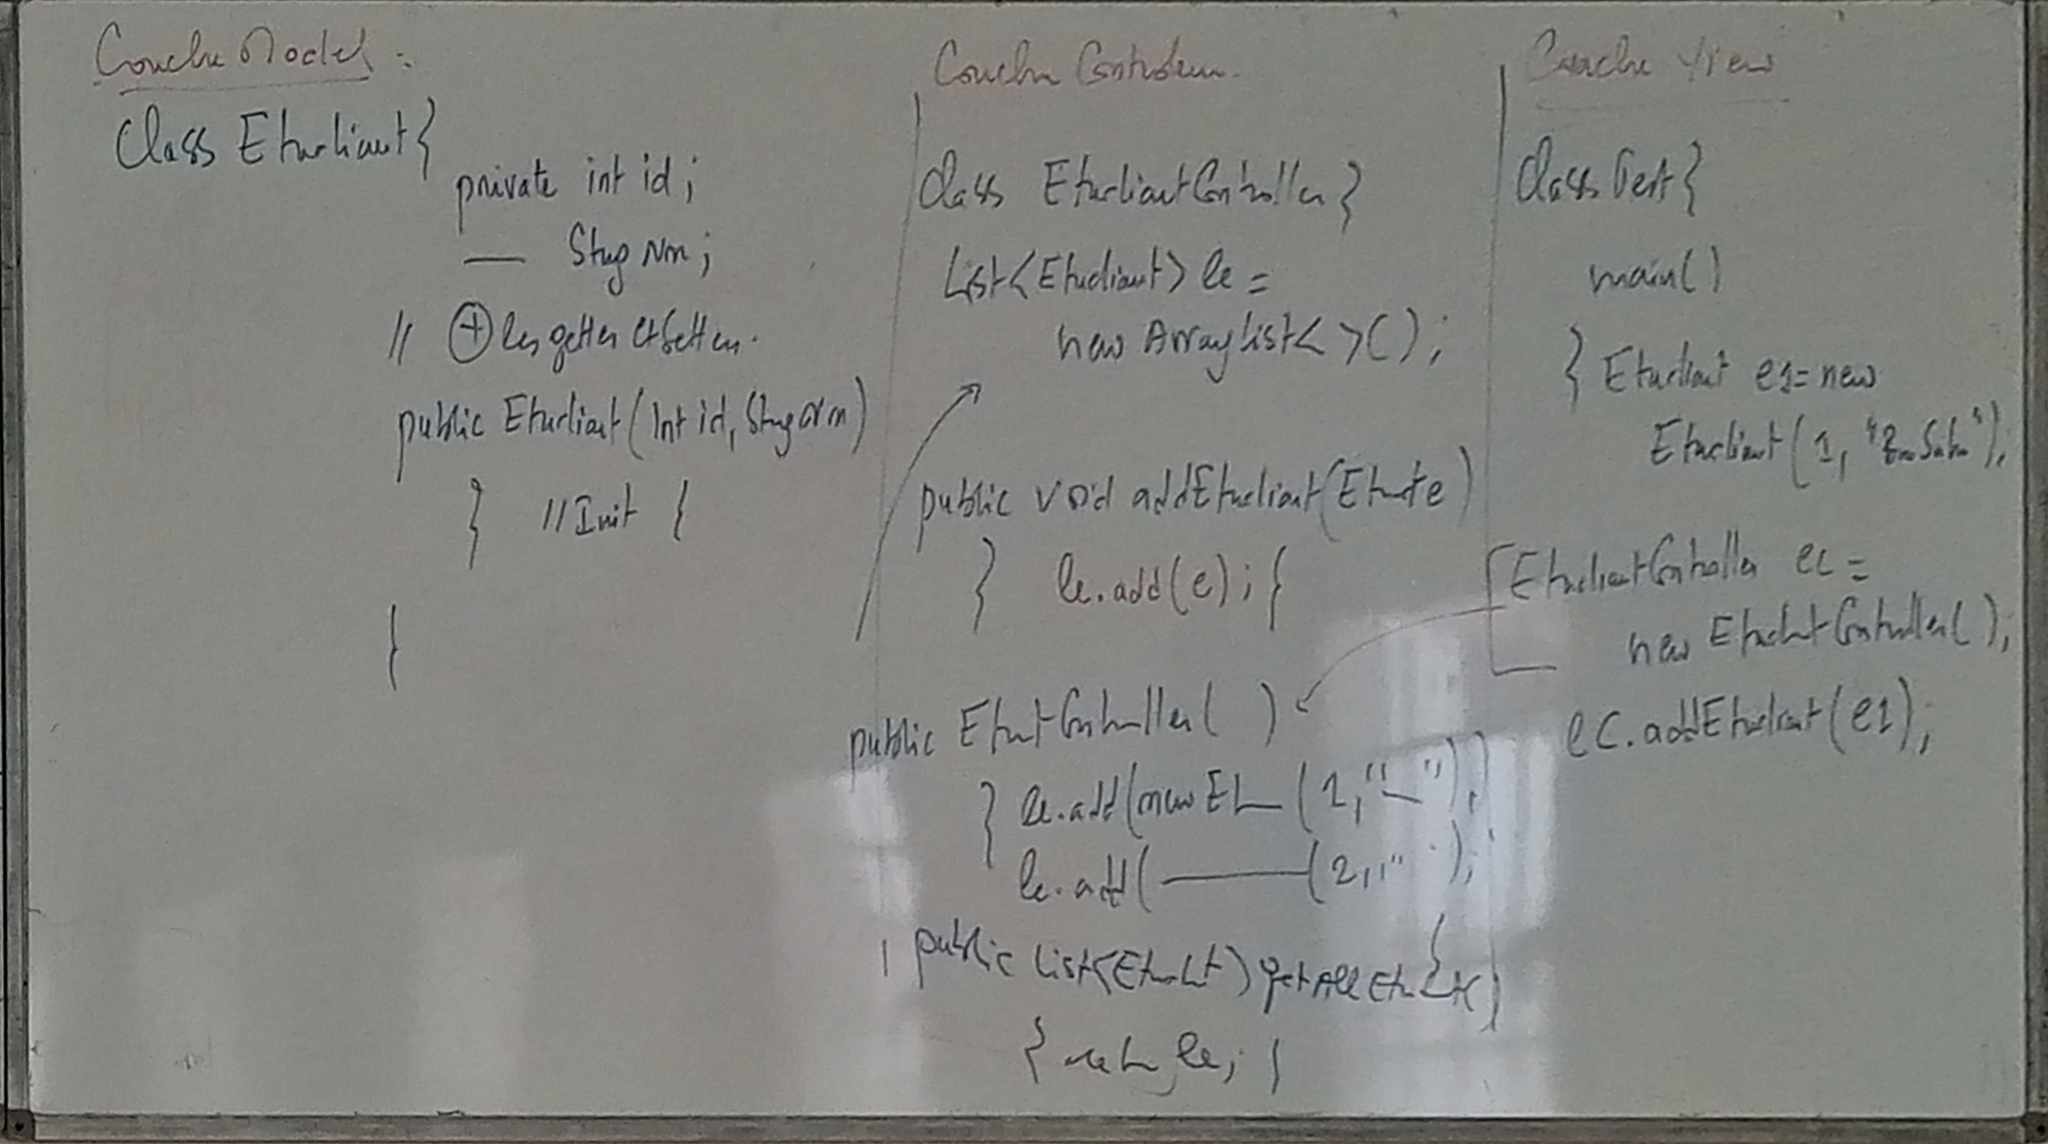 Couche Model :
Class Etudiant {
private int id ;
— Stug Nm ;
// ⊕ les getter et setter.
public Etudiant (Int id, Stug Nm)
{ // Init }
}
Couche Controleur
Class EtudiantController {
List<Etudiant> le =
new ArrayList< >( ) ;
public void addEtudiant(Etu-t e)
{ le.add(e) ; }
public Etu-tController( )
{ le.add(new Et— (1, "—") ;
le.add( ——— (2, " ") ;
public List<Etu-t> getAllEtu-t( )
{ return le ; }
Couche View
Class Test {
main( )
{ Etudiant e1 = new
Etudiant (1, " ") ;
EtudiantController ec =
new EtudiantController( ) ;
ec.addEtudiant(e1) ;